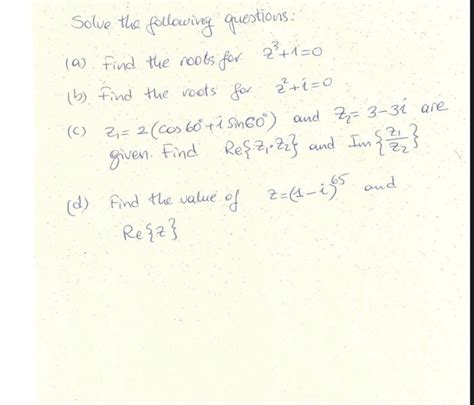 Solve the following questions:
(a) Find the roots for z³+1=0
(b) Find the roots for z²+i=0
(c) z₁= 2(cos60°+i sin60°) and z₂= 3-3i are
given. Find Re{z₁.z₂} and Im{z₁/z₂}
(d) Find the value of z=(1-i)⁶⁵ and
Re{z}